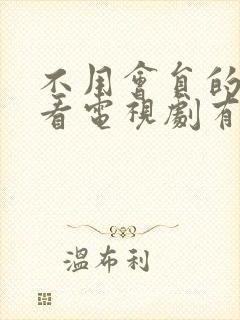 不用會員的
看電視劇有
溫布利